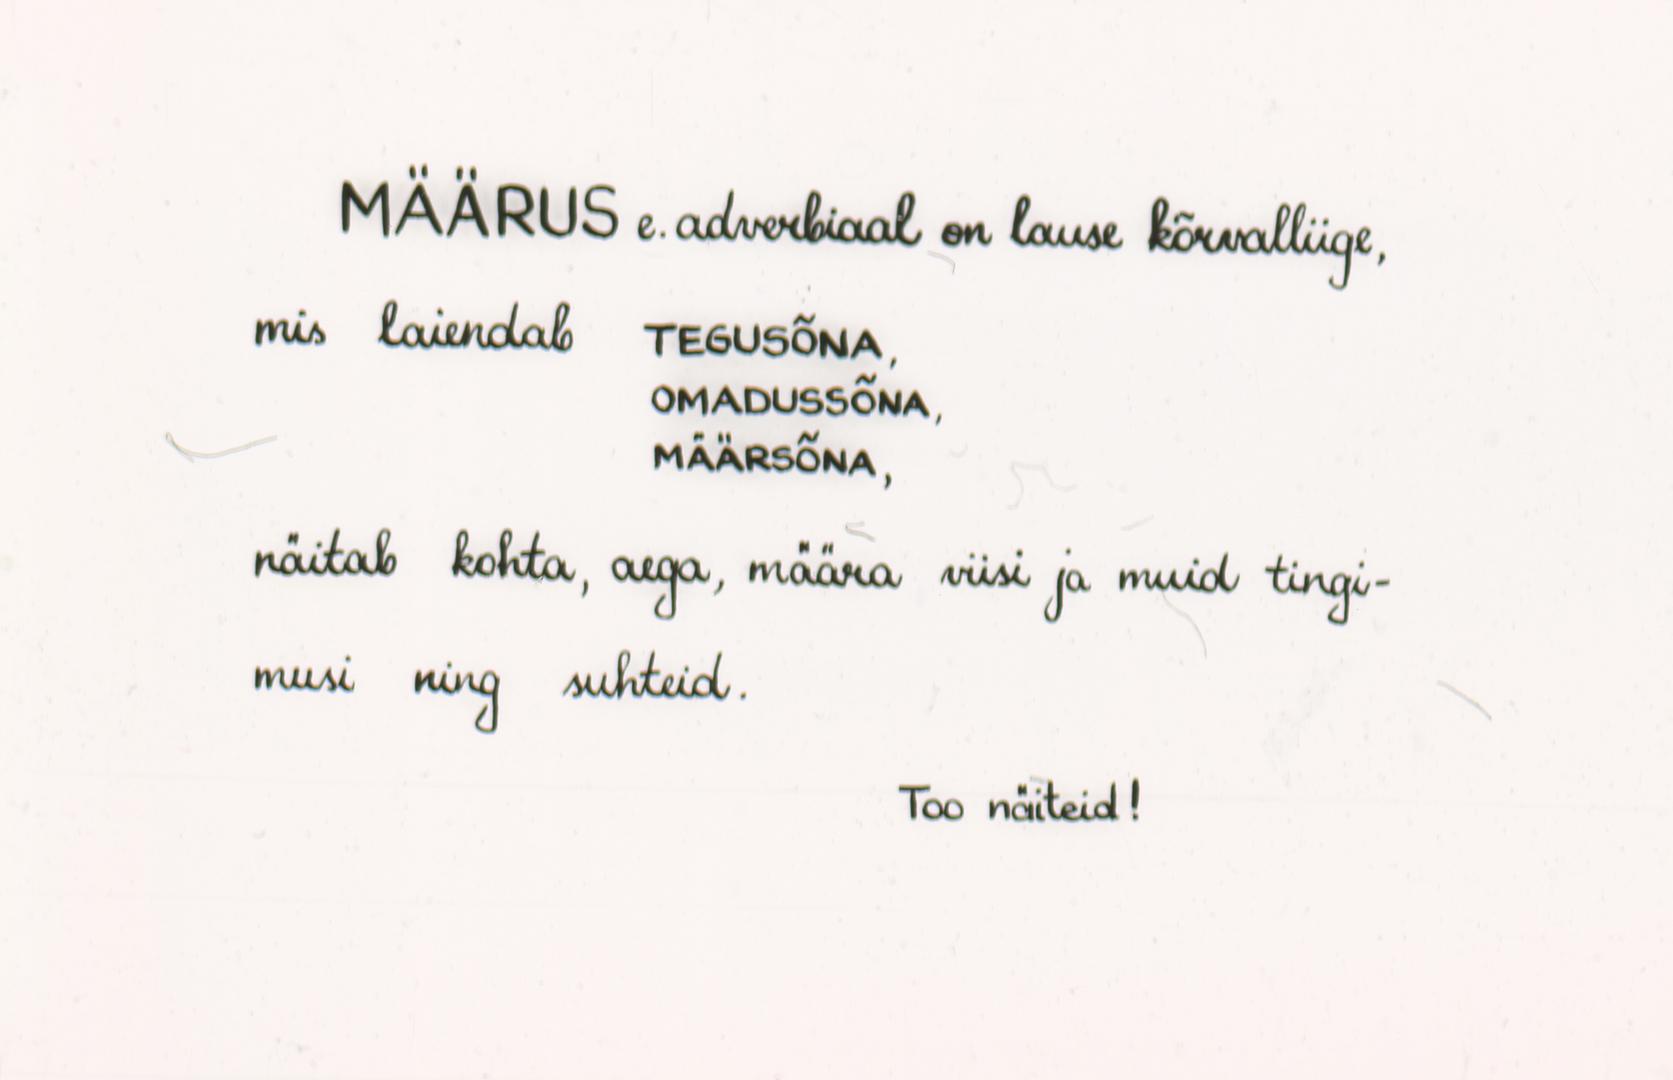 MÄÄRUS e. adverbiaal on lause kõrvalliige,
mis laiendab TEGUSÕNA,
OMADUSSÕNA,
MÄÄRSÕNA,
näitab kohta, aega, määra viisi ja muid tingi-
musi ning suhteid.
Too näiteid!